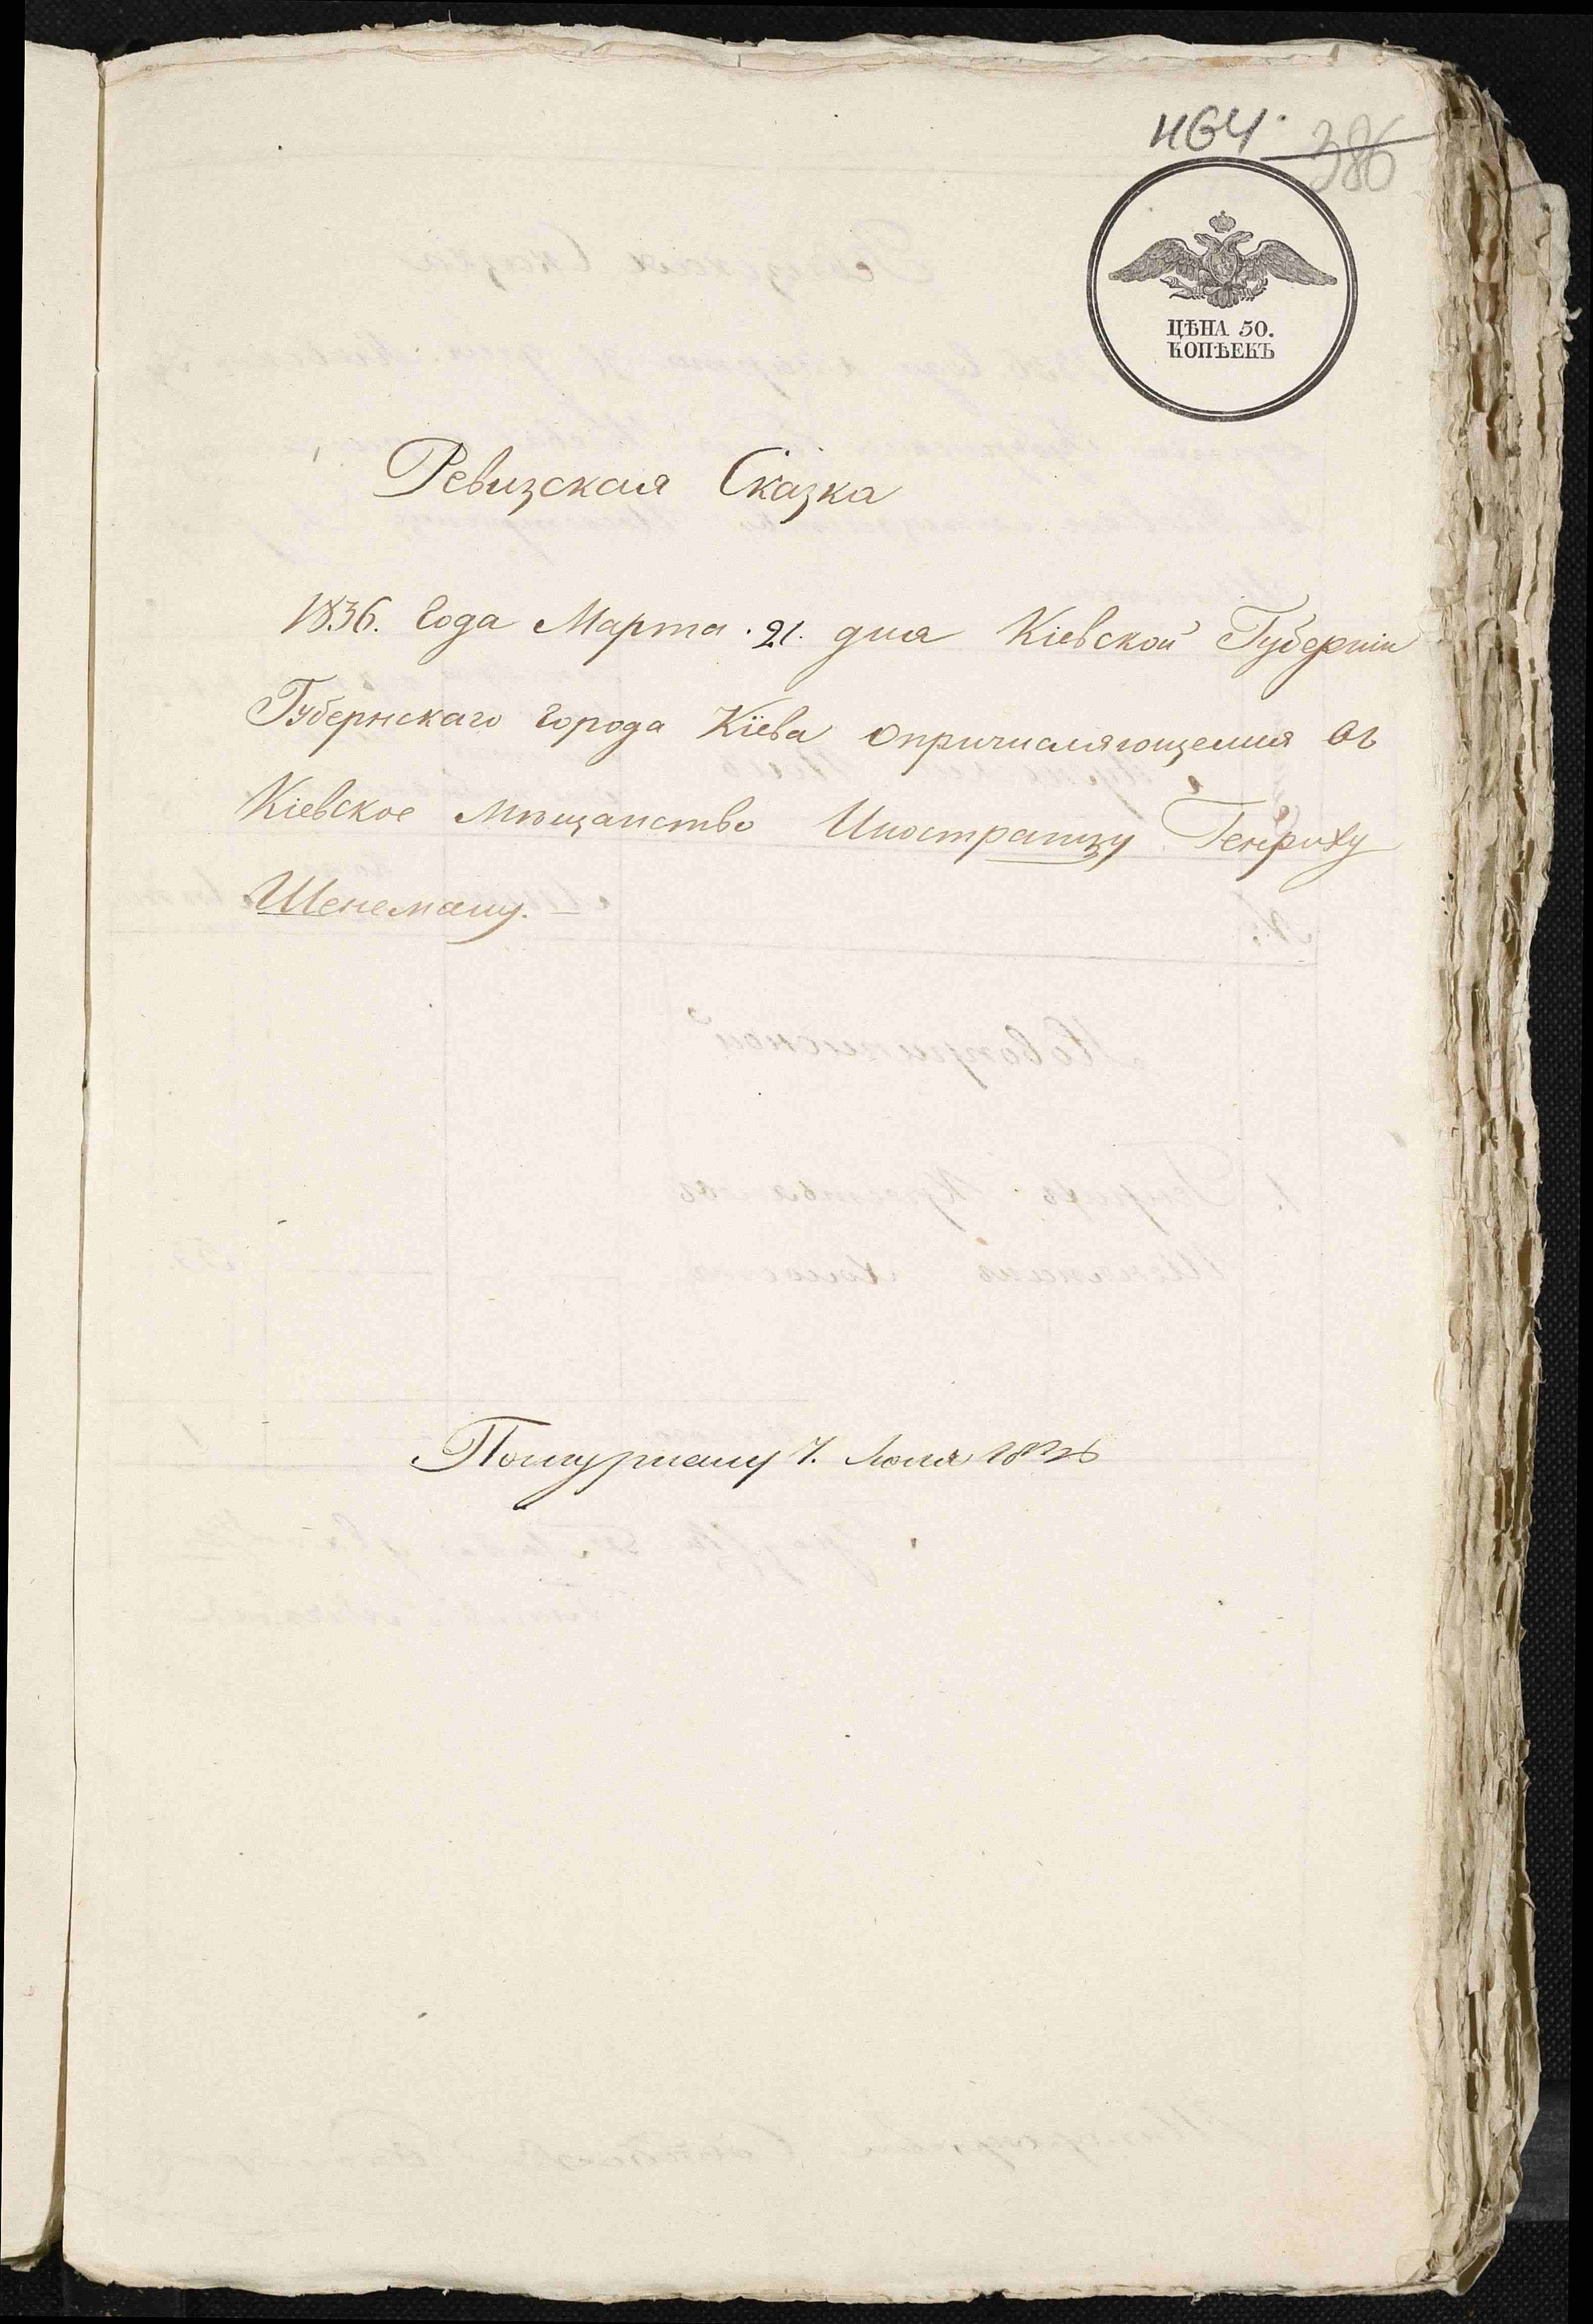 464. 386
ЦѢНА 50.
КОПѢЕКЪ
Ревизская Сказка
1836. Года Марта 21. дня Кіевской Губерніи
Губернскаго города Кіева опричисляющемся въ
Кіевское мѣщанство Иностранцу Генриху
Шенеману.
7. Іюля 1836